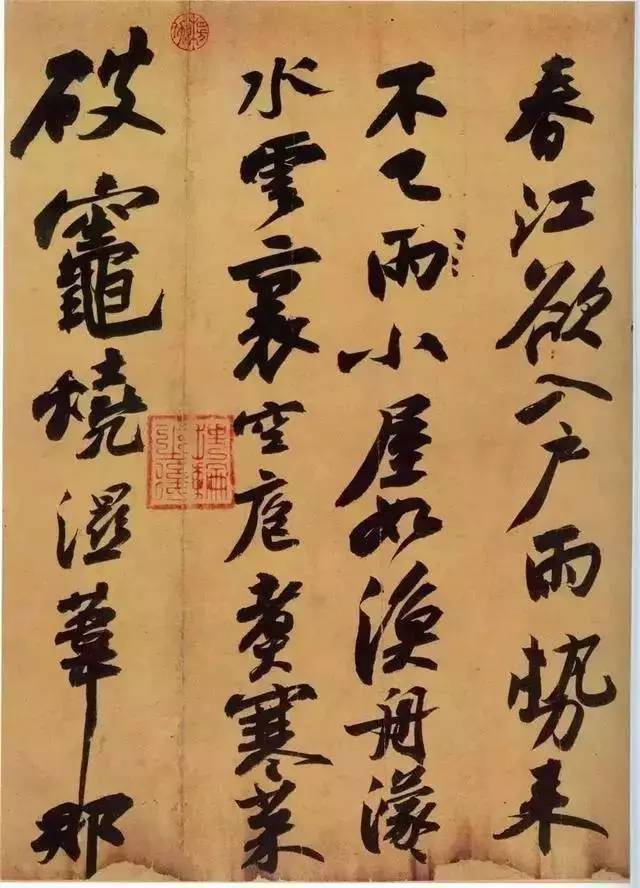 春江欲入户雨勢来
不已雨小屋如漁舟濛
水雲裏空庖煮寒菜
破竈燒濕葦那